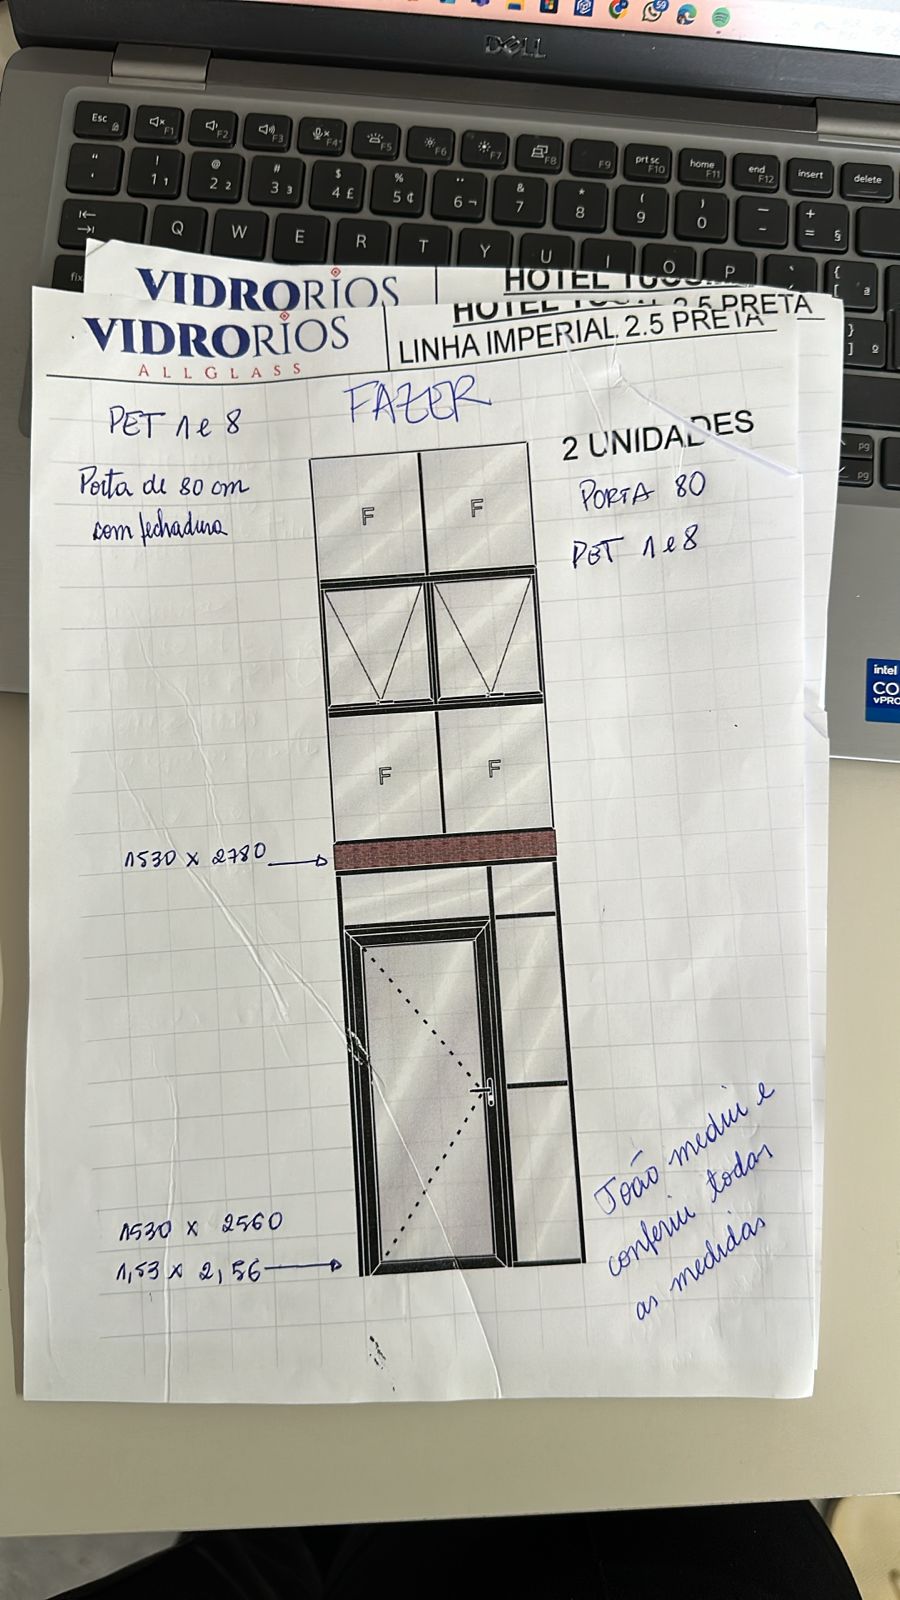 DELL
Esc
F1
F2
F3
F4
F5
F6
F7
F8
F9
prt sc
F10
home
F11
end
F12
insert
delete
! 1 1
@ 2 2
# 3 3
$ 4 £
% 5 ¢
¨ 6 ¬
& 7
* 8
( 9
) 0
_ -
+ = §
Q W E R T Y U I O P
VIDRORIOS
VIDRORIOS
ALLGLASS
HOTEL
LINHA IMPERIAL 2.5 PRETA
2.5 PRETA
FAZER
PET 1 e 8
Porta de 80 cm
com fechadura
2 UNIDADES
PORTA 80
PET 1 e 8
F F
F F
1530 x 2780
1530 x 2560
1,53 x 2,56
João mediu e
conferiu todas
as medidas
pg
pg
intel
CO
vPRO